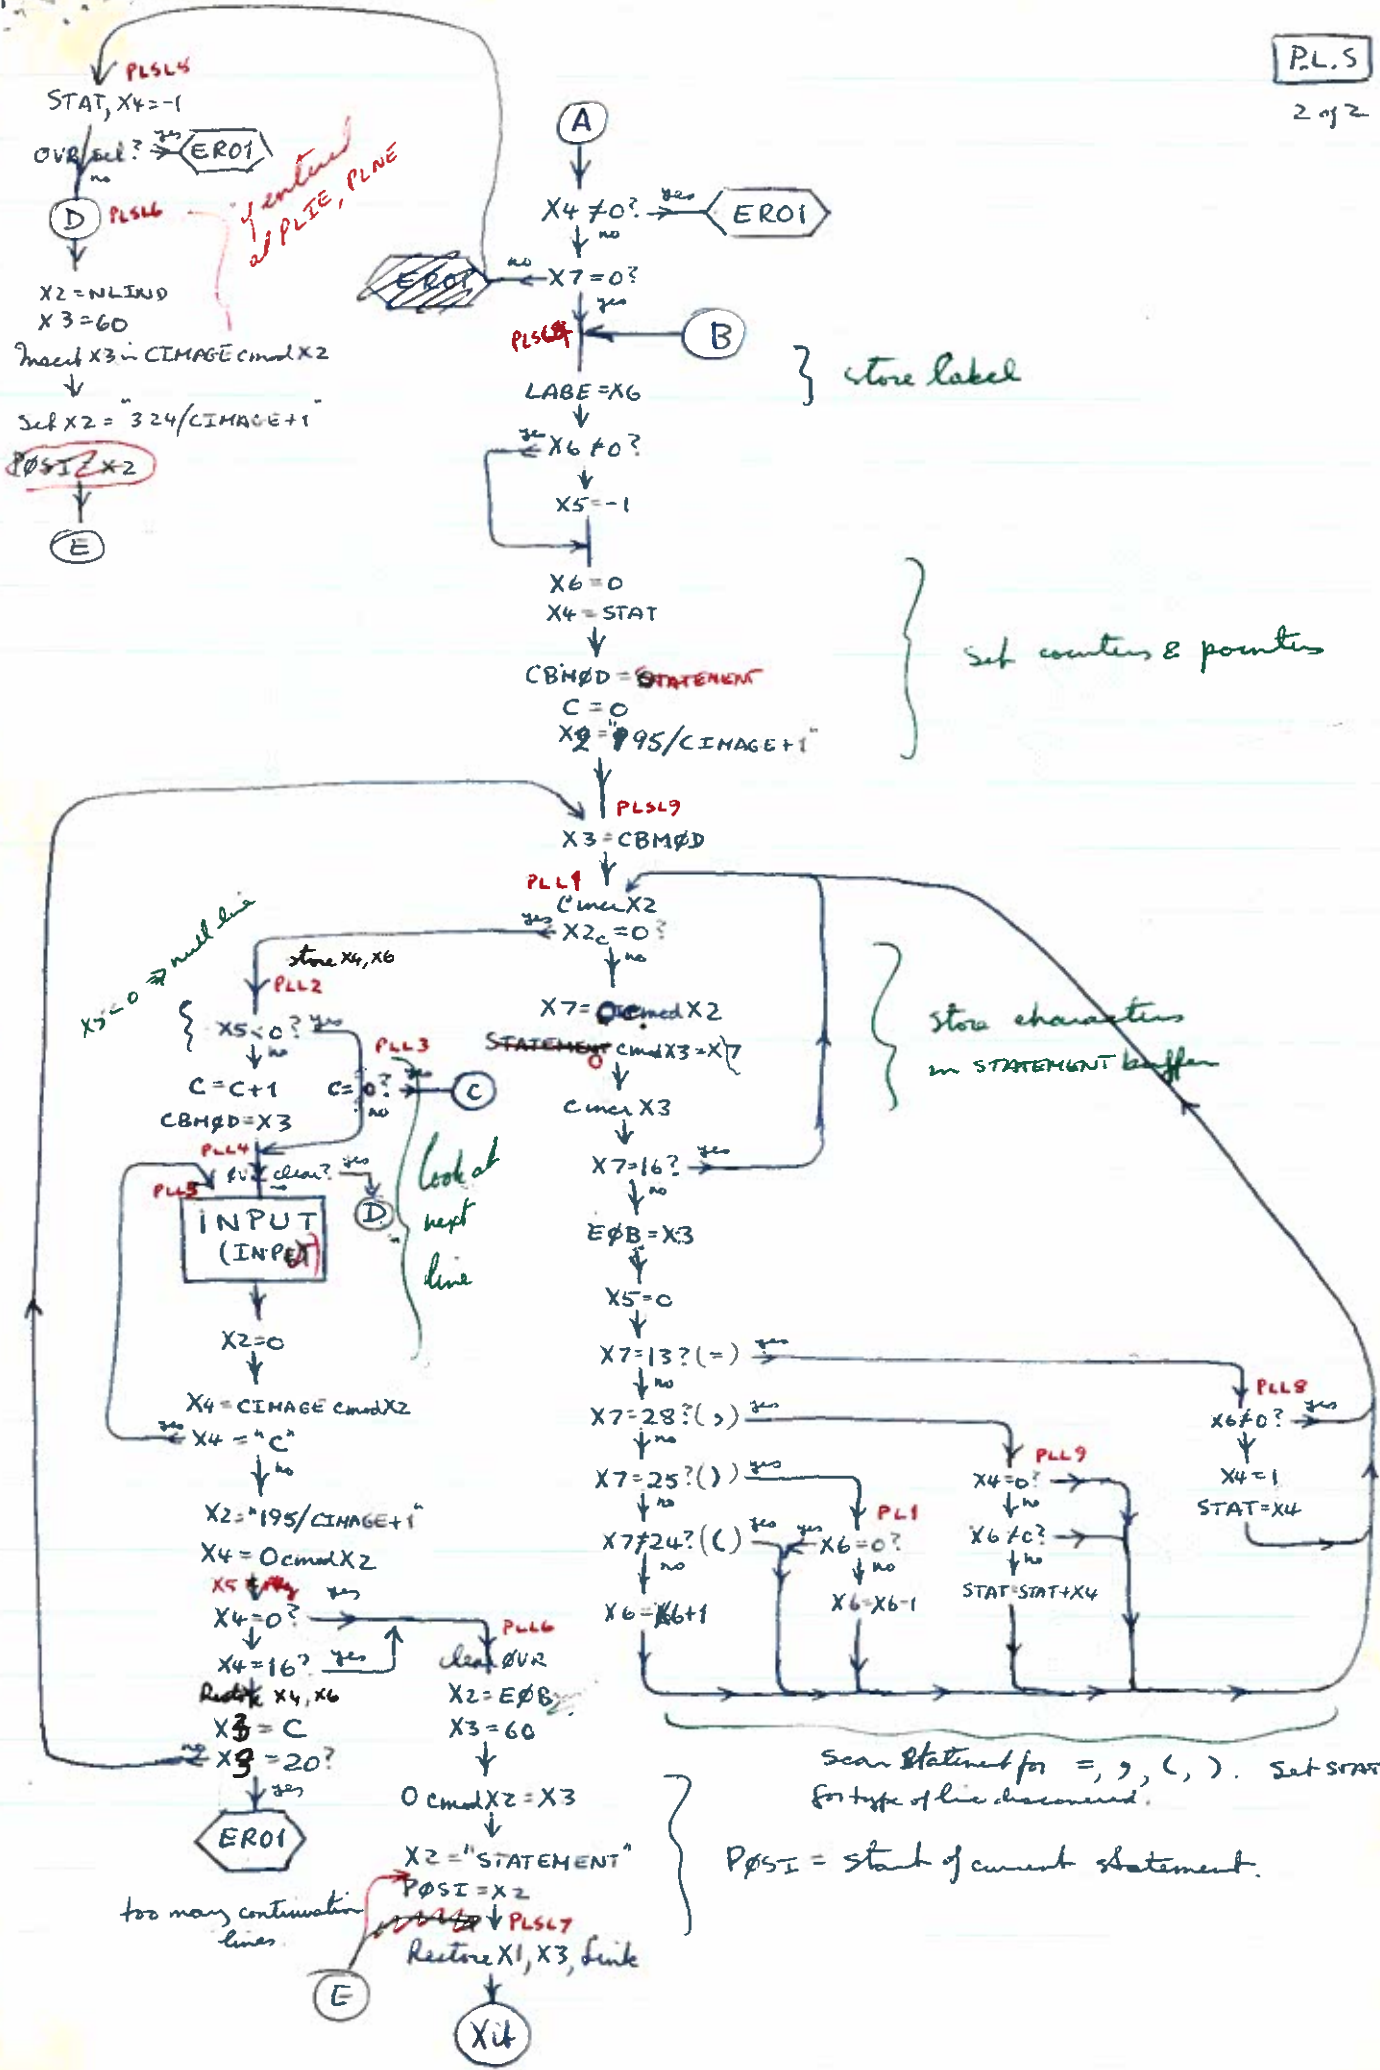 P.L.S
2 of 2
PLSL5
STAT, X4=-1
OVR set? yes ER01
no
D PLSL6
if entered
at PLIE, PLNE
X2=NLIND
X3=60
Insert X3 in CIMAGE cmod X2
Set X2="324/CIMAGE+1"
PØSI=X2
E
A
X4≠0? yes ER01
no
ER01 no X7=0?
yes
B
store label
LABE=X6
yes X6≠0?
X5=-1
X6=0
X4=STAT
CBMØD=STATEMENT
C=0
X2="195/CIMAGE+1"
set counters & pointers
PLSL9
X3=CBMØD
PLL1
C incr X2
yes X2c=0?
no
X7=0 cmod X2
STATEMENT 0 cmod X3=X7
C incr X3
store characters
in STATEMENT buffer
X7=16? yes
no
EØB=X3
X5=0
X7=13?(=) yes
no
X7=28?(,) yes
no
X7=25?()) yes
no
X7≠24?(() yes
no
X6=X6+1
PL1
yes X6=0?
no
X6=X6-1
PLL9
X4=0?
no
X6≠0?
no
STAT=STAT+X4
PLL8
X6≠0? yes
X4=1
STAT=X4
scan statement for =, ,, (, ). Set STAT
for type of line discovered.
X5<0 ⇒ null line
store X4, X6
PLL2
X5<0? yes
no
C=C+1
CBMØD=X3
PLL3
C=0? yes C
no
PLL4
ØVR clear? yes
D
PLL5
INPUT
(INPUT)
Look at
next
line
X2=0
X4=CIMAGE cmod X2
yes X4="C"
no
X2="195/CIMAGE+1"
X4=0 cmod X2
X4=0? yes
X4=16? yes
Restore X4, X6
X3=C
no X3=20?
yes
ER01
too many continuation
lines.
PLL6
clear ØVR
X2=EØB
X3=60
0 cmod X2=X3
X2="STATEMENT"
PØSI=X2
PØSI = start of current statement.
PLSL7
Restore X1, X3, Link
E
Xit